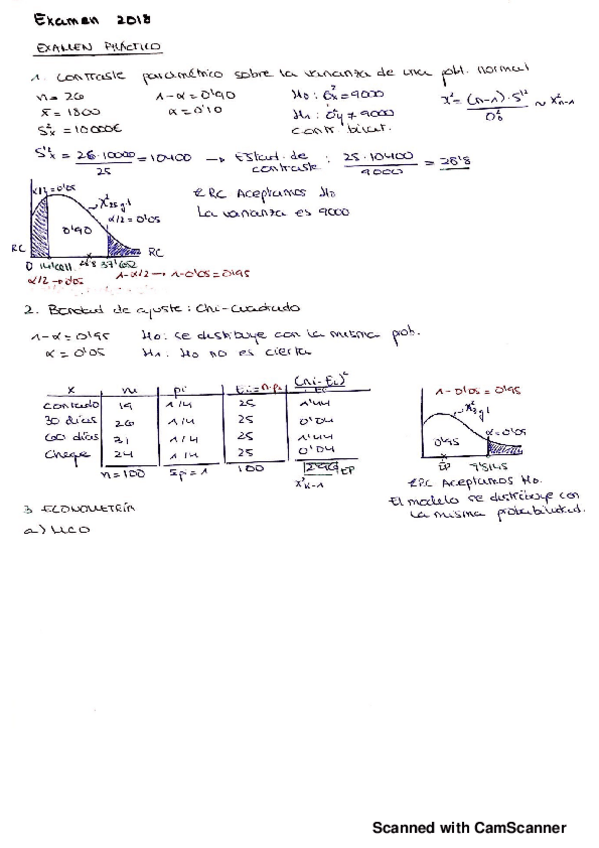 Examen 2018
EXAMEN PRÁCTICO
1. Contraste paramétrico sobre la varianza de una pobl. normal
n = 26 1-α = 0'90 H0: σ²x = 9000 χ² = (n-1)·S'² / σ²0 ~ χ²n-1
x̄ = 1800 α = 0'10 H1: σ²x ≠ 9000
S²x = 10000€ contr. bilat.
S'²x = 26·10000 / 25 = 10400 → Estad. de contraste: 25·10400 / 9000 = 28'8
α/2 = 0'05 χ²25 g.l α/2 = 0'05
∉RC Aceptamos H0
0'90 La varianza es 9000
RC RC
0 14'611 28'8 37'652
α/2 → 0'05 1-α/2 → 1-0'05 = 0'95
2. Bondad de ajuste: Chi-cuadrado
1-α = 0'95 H0: se distribuye con la misma prob.
α = 0'05 H1: H0 no es cierta
x ni pi Ei = n·pi (ni-Ei)² / Ei
contado 19 1/4 25 1'44
30 días 26 1/4 25 0'04
60 días 31 1/4 25 1'44
Cheque 24 1/4 25 0'04
n = 100 Σpi = 1 100 2'96 EP
χ²k-1
1-0'05 = 0'95
χ²3 g.l
α = 0'05
0'95
EP 7'8145
∉RC Aceptamos H0.
El modelo se distribuye con
la misma probabilidad.
3 ECONOMETRÍA
a) MCO
Scanned with CamScanner